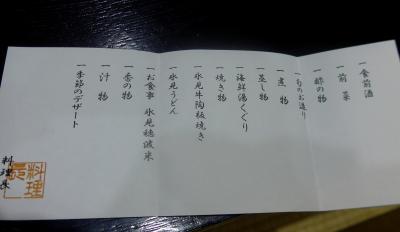 一 食前酒
一 前菜
一 酢の物
一 旬のお造り
一 煮物
一 蒸し物
一 海鮮湯くぐり
一 焼き物
一 氷見牛陶板焼き
一 氷見うどん
一 お食事 氷見穂波米
一 香の物
一 汁物
一 季節のデザート
料理長
料理長